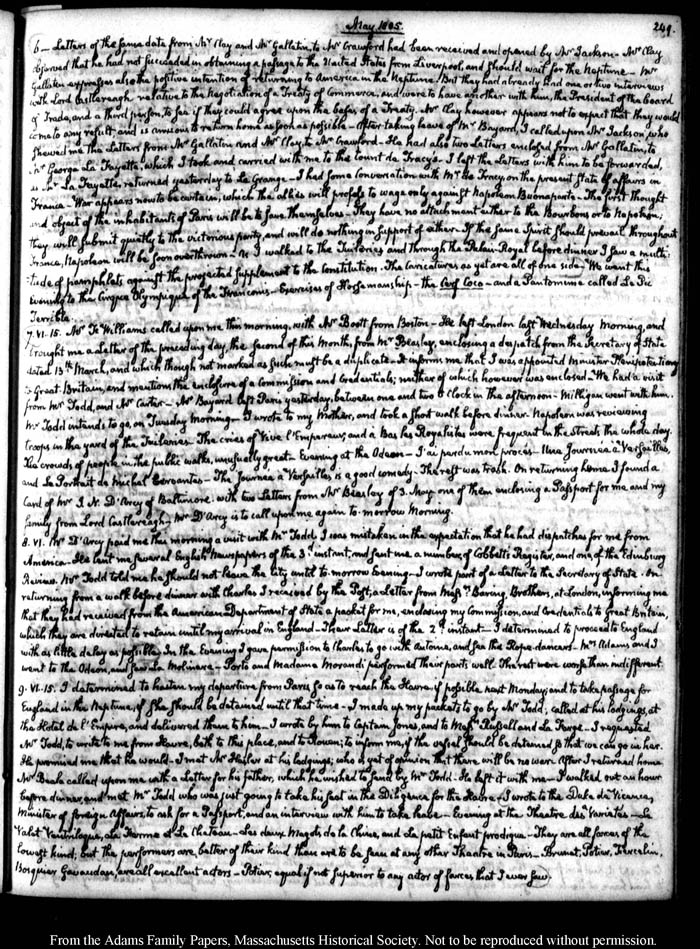 May 1805.
249.
6 – Letters of the same date from Mr Clay and Mr Gallatin, to Mr Crawford had been received and opened by Mr Jackson – Mr Clay
observed that he had not succeeded in obtaining a passage to the United States from Liverpool, and should wait for the Neptune – Mr
Gallatin expresses also the positive intention of returning to America in the Neptune. But they had already had one or two interviews
with Lord Castlereagh relative to the Negotiation of a Treaty of Commerce, and were to have another with him, the President of the board
of Trade, and a third person, to see if they could agree upon the bases of a Treaty. Mr Clay however appears not to expect that they would
come to any result, and is anxious to return home as soon as possible – After taking leave of Mr Bayard, I called upon Mr Jackson, who
shewed me the Letters from Mr Gallatin and Mr Clay, to Mr Crawford. He had also two Letters enclosed from Mr Gallatin, to
Mr George La Fayette, which I took and carried with me to the Count de Tracy's. I left the Letters with him to be forwarded,
as Mr La Fayette, returned yesterday to La Grange – I had some Conversation with Mr de Tracy on the present state of affairs in
France – War appears now to be certain, which the allies will profess to wage only against Napoleon Buonaparte – The first thought
and object of the inhabitants of Paris will be to save themselves – They have no attachment either to the Bourbons or to Napoleon;
they will submit quietly to the victorious party, and will do nothing in support of either. If the same Spirit should prevail throughout
France, Napoleon will be soon overthrown – I walked to the Tuileries and through the Palais-Royal before dinner I saw a multi-
-tude of pamphlets against the projected supplement to the Constitution. The Caricatures as yet are all of one side – We went this
Evening to the Cirque Olympique of the Franconis – Exercises of Horsemanship – the Cerf Coco – and a Pantomime called Le Pic
Terrible.
7. VI. 15. Mr T. Williams called upon me this morning, with Mr Boott from Boston – He left London last Wednesday Morning, and
brought me a Letter of the preceding day, the second of this Month, from Mr Beasley, enclosing a dispatch from the Secretary of State
dated 13th March, and which though not marked as such must be a duplicate. It informs me that I was appointed Minister Plenipotentiary
to Great Britain, and mentions the enclosure of a Commission and Credentials; neither of which however was enclosed – We had a visit
from Mr Todd, and Mr Carter – Mr Bayard left Paris yesterday, between one and two o'clock in the afternoon – Milligan went with him.
Mr Todd intends to go, on Tuesday Morning – I wrote to my Mother, and took a short walk before dinner. Napoleon was reviewing
troops in the yard of the Tuileries – The cries of Vive l'Empereur, and à Bas les Royalistes were frequent in the Streets the whole day.
The crowds of people in the public walks, unusually great – Evening at the Odeon – J'ai perdu mon procès – Une Journée à Versailles,
and Le Portrait de Michel Cervantes – The Journée à Versailles is a good comedy – The rest was trash. On returning home I found a
Card of Mr I. N. D'Arcy of Baltimore, with two Letters from Mr Beasley of 3. May one of them enclosing a Passport for me and my
family from Lord Castlereagh – Mr D'Arcy is to call upon me again to-morrow Morning.
8. VI. Mr D'Arcy paid me this morning a visit with Mr Todd. I was mistaken in the expectation that he had dispatches for me from
America – He lent me several English Newspapers of the 3d instant, and sent me a number of Cobbett's Register, and one of the Edinburg
Review. Mr Todd told me he should not leave the city until to-morrow Evening – I wrote part of a Letter to the Secretary of State. On
returning from a walk before dinner with Charles I received by the Post, a Letter from Messrs Baring, Brothers, at London, informing me
that they had received from the American Department of State a packet for me, enclosing my Commission, and Credentials to Great Britain,
which they are directed to retain until my arrival in England – Their Letter is of the 2d instant – I determined to proceed to England
with as little delay as possible. In the Evening I gave permission to Charles to go with Antoine, and see the Rope-dancers – Mrs Adams and I
went to the Odeon, and saw La Molinara – Porto and Madame Morandi performed their parts well. The rest were worse than indifferent.
9. VI. 15. I determined to hasten my departure from Paris so as to reach the Havre if possible next Monday, and to take passage for
England in the Neptune, if she should be detained until that time – I made up my packets to go by Mr Todd, called at his lodgings, at
the Hotel de l'Empire, and delivered them to him – I wrote by him to Captain Jones, and to Messrs Russell and La Farge – I requested
Mr Todd, to write to me from Havre, both to this place, and to Rouen; to inform me, if the vessel should be detained so that we can go in her.
He promised me that he would – I met Mr at his lodgings; who is yet of opinion that there will be no war. After I returned home,
Mr Beale called upon me with a Letter for his father, which he wished to send by Mr Todd – He left it with me – I walked out an hour
before dinner, and met Mr Todd who was just going to take his seat in the Diligence for the Havre – I wrote to the Duke de Vicence,
Minister of foreign Affairs, to ask for a Passport, and an interview with him to take leave – Evening at the Theatre des Varietés – Le
Valet Ventriloque, La Ferme et Le Chateau – Les deux Magots de la Chine, and Le petit Enfant prodigue – They are all farces of the
lowest kind; but the performers are better of their kind than are to be seen at any other Theatre in Paris – Brunet, Potier, Tiercelin,
Bosquier Gavaudan, are all excellent actors – Potier, equal if not superior to any actor of farces that I ever saw.
From the Adams Family Papers, Massachusetts Historical Society. Not to be reproduced without permission.